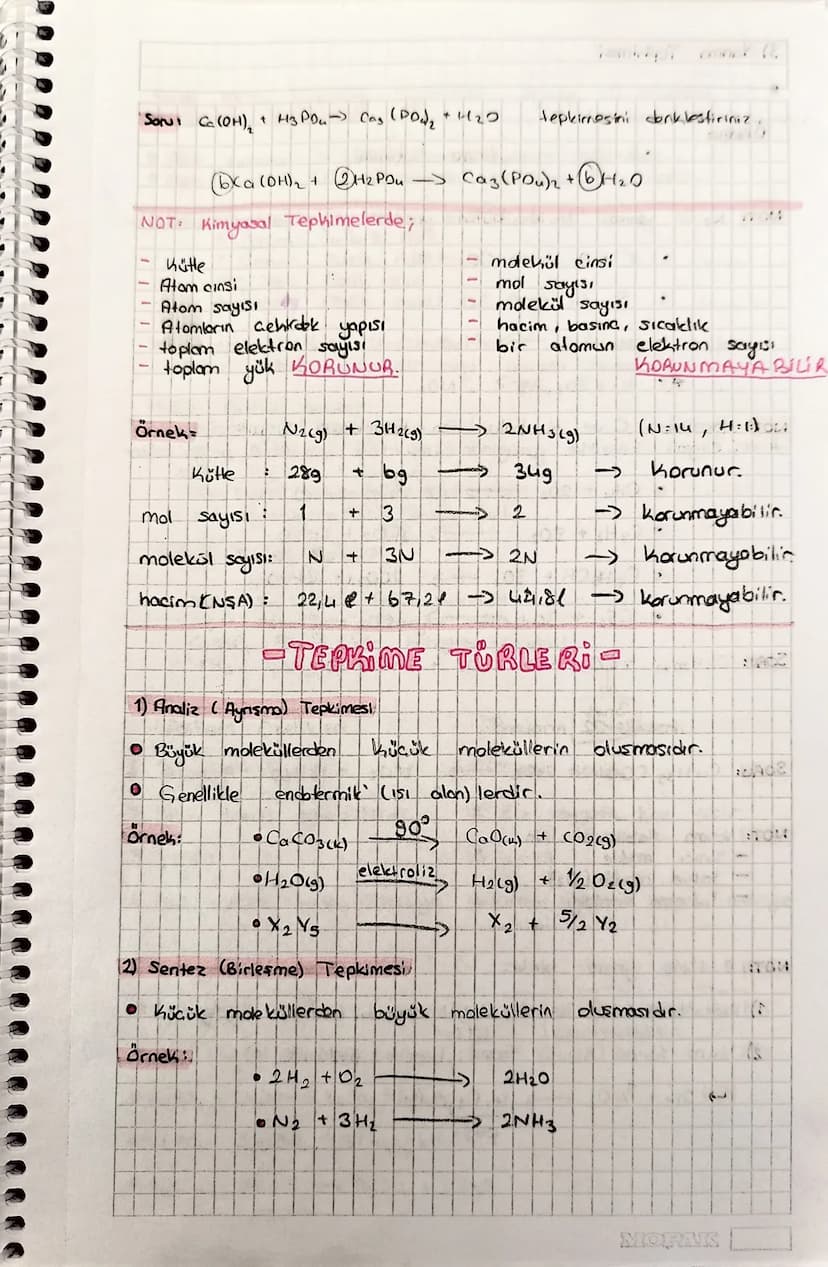 Soru: Ca(OH)₂ + H3PO4 → Ca3(PO4)2 + H2O tepkimesini denkleştiriniz.
⑥Ca(OH)2 + ②H2PO4 → Ca3(PO4)2 + ⑥H2O
NOT: Kimyasal Tepkimelerde;
- Kütle
- Atom cinsi
- Atom sayısı
- Atomların çekirdek yapısı
- toplam elektron sayısı
- toplam yük KORUNUR.
- molekül cinsi
- mol sayısı
- molekül sayısı
- hacim, basınç, sıcaklık
- bir atomun elektron sayısı
KORUNMAYABİLİR
Örnek= N2(g) + 3H2(g) → 2NH3(g) (N=14, H=1)
Kütle : 28g + 6g → 34g → Korunur.
mol sayısı : 1 + 3 → 2 → Korunmayabilir.
molekül sayısı: N + 3N → 2N → Korunmayabilir
hacim(NŞA) : 22,4 l + 67,2l → 44,8l → Korunmayabilir.
-TEPKİME TÜRLERİ-
1) Analiz (Ayrışma) Tepkimesi
• Büyük moleküllerden küçük moleküllerin oluşmasıdır.
• Genellikle endotermik (ısı alan)lerdir.
Örnek: • CaCO3(k) 90° → CaO(k) + CO2(g)
• H2O(g) elektroliz → H2(g) + 1/2 O2(g)
• X2Y5 → X2 + 5/2 Y2
2) Sentez (Birleşme) Tepkimesi
• Küçük moleküllerden büyük moleküllerin oluşmasıdır.
Örnek:
• 2H2 + O2 → 2H2O
• N2 + 3H2 → 2NH3